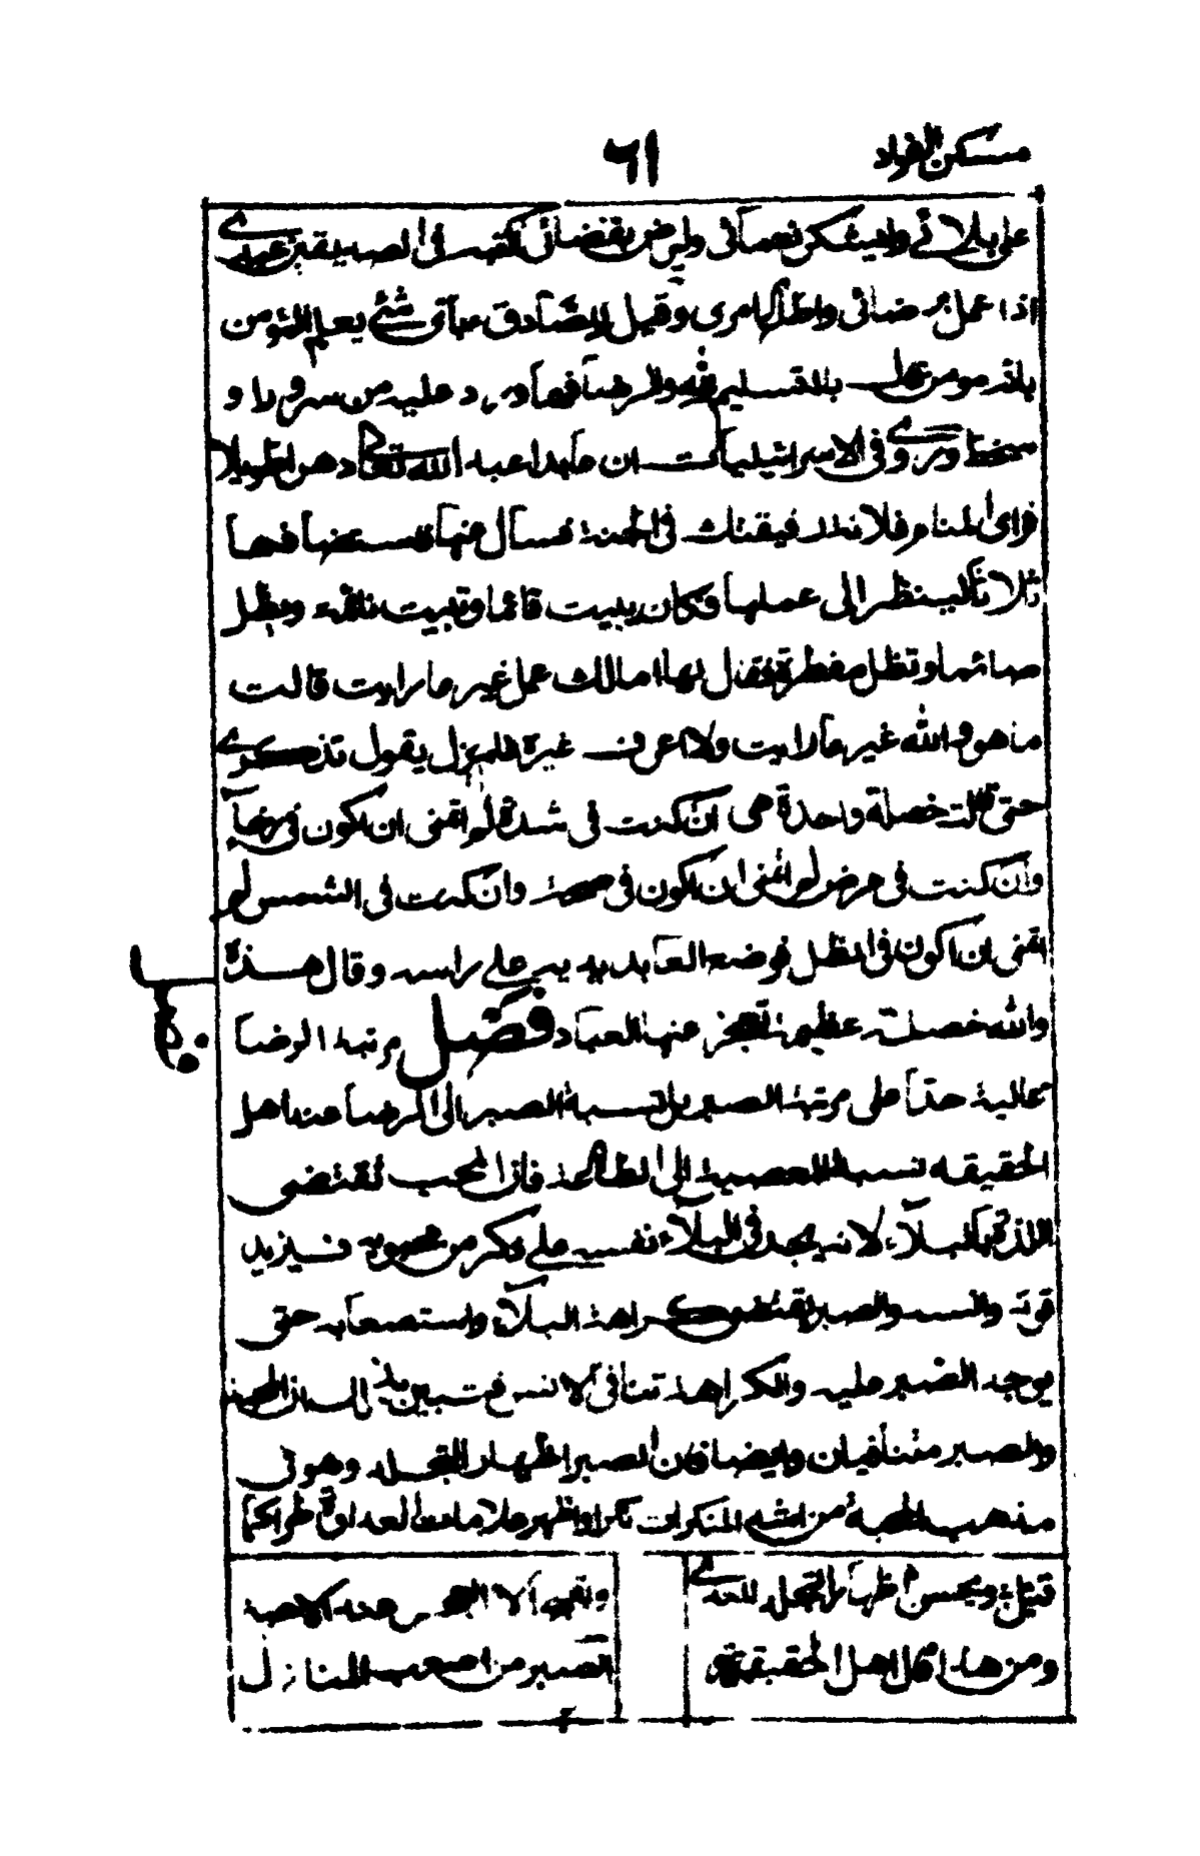 مسكن الفواد
٦١
على بلائى وليشكر نعمائى وليرض بقضائى اكتبه فى الصديقين عندى
اذا عمل برضائى واطاع امرى وقيل للصادق باى شئ يعلم المؤمن
بانه مومن قال بالتسليم لله والرضا فيما ورد عليه من سرور او
سخط وروى فى الاسرائيليات ان عابدا عبد الله تعالى دهرا طويلا
فراى فى المنام فلانة رفيقتك فى الجنة فسال عنها واستضافها
ثلاثا لينظر الى عملها فكان يبيت قائما وتبيت نائمة ويظل
صائما وتظل مفطرة فقال لها اما لك عمل غير ما رايت قالت
ما هو والله غير ما رايت ولا اعرف غيره فلم يزل يقول تذكرى
حتى قالت خصلة واحدة هى ان كنت فى شدة لم اتمنى ان اكون فى رخاء
وان كنت فى مرض لم اتمنى ان اكون فى صحة وان كنت فى الشمس لم
اتمنى ان اكون فى الظل فوضع العابد يديه على راسه وقال هذه
والله خصلة عظيمة تعجز عنها العباد فصل مرتبة الرضا
عالية جدا على مرتبة الصبر بل نسبة الصبر الى الرضا عند اهل
الحقيقة نسبة المعصية الى الطاعة فان المحب تقتضى
اللذة بالبلاء لانه يجد فى البلاء نفسه على ذكر من محبوبه فيزيد
قربه وانسه والصبر يقتضى كراهة البلاء واستصعابه حتى
يوجد الصبر عليه والكراهة تنافى الانس فتبين بذلك ان المحبة
والصبر متنافيان وايضا فان الصبر اظهار التجلد وهو فى
مذهب المحبة من اشد المنكرات اثرا واظهر علامات العداوة طرا كما
قيل ويحسن اظهار التجلد للعدى
ويقبح الا العجز عند الاحبة
ومن هنا قال اهل الحقيقة
الصبر من اصعب المنازل